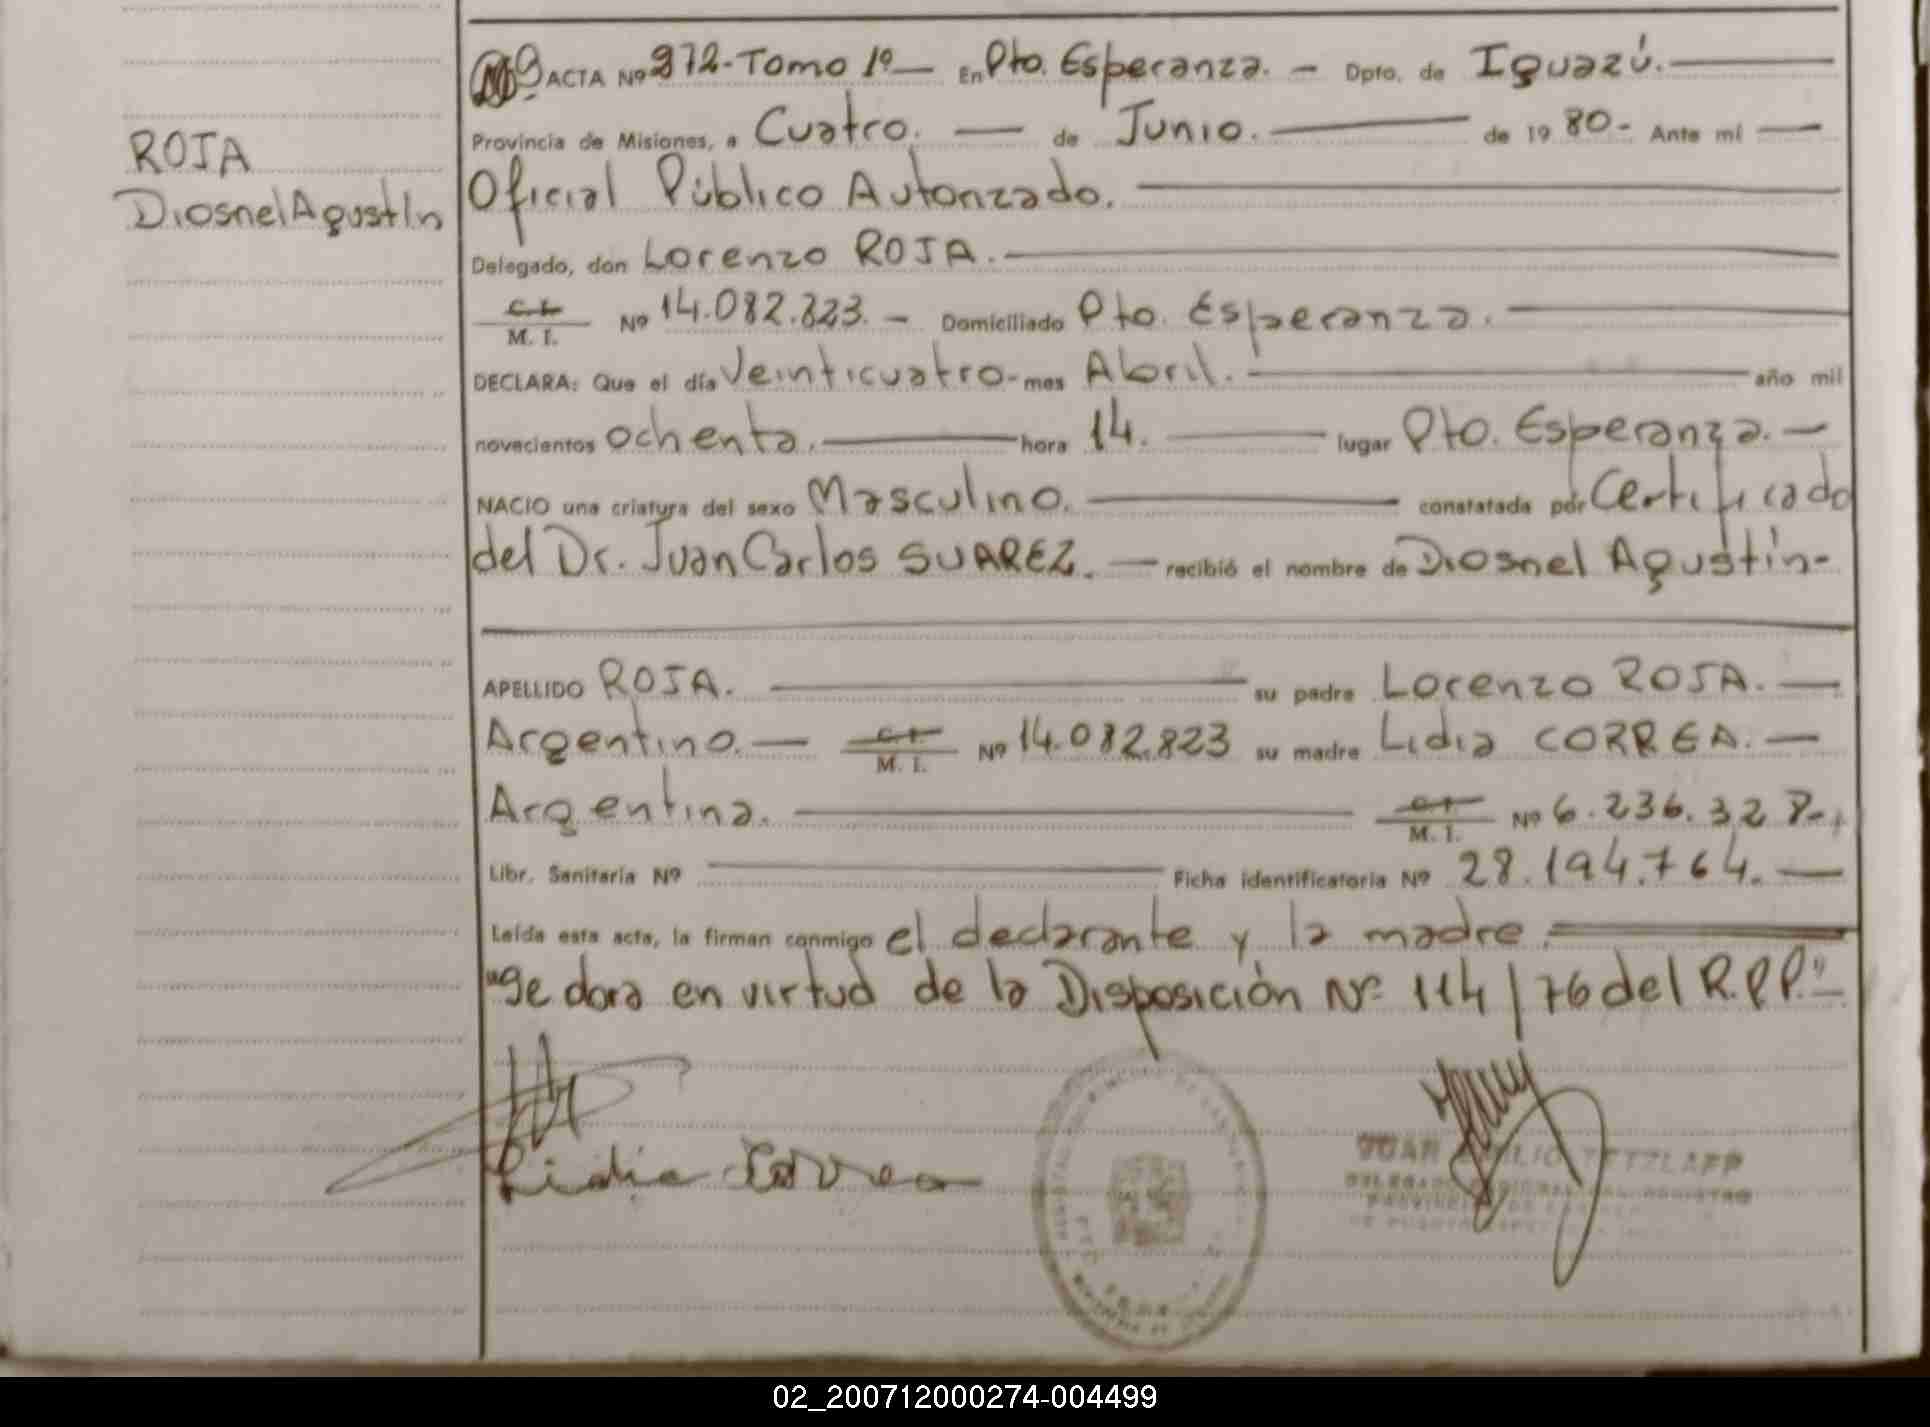 ROJA
Diosnel Agustín
ACTA Nº 272-Tomo 1º — En Pto. Esperanza. — Dpto. de Iguazú.
Provincia de Misiones, a Cuatro. — de Junio. — de 1980- Ante mi —
Oficial Público Autorizado.
Delegado, don Lorenzo ROJA.
C. I.
M. I. Nº 14.082.823. — Domiciliado Pto. Esperanza.
DECLARA: Que el día Veinticuatro- mes Abril. — año mil
novecientos ochenta. — hora 14. — lugar Pto. Esperanza. —
NACIO una criatura del sexo Masculino. — constatada por Certificado
del Dr. Juan Carlos SUAREZ. — recibió el nombre de Diosnel Agustín-
APELLIDO ROJA. — su padre Lorenzo ROJA. —
Argentino. — C. I. M. I. Nº 14.082.823 su madre Lidia CORREA. —
Argentina. — C. I. M. I. Nº 6.236.328-
Libr. Sanitaria Nº — Ficha identificatoria Nº 28.194.764. —
Leída esta acta, la firman conmigo el declarante y la madre.
"Se dora en virtud de la Disposición Nº 114/76 del R.P.P." —
Lidia Correa
JUAN EMILIO TETZLAFF
02_200712000274-004499